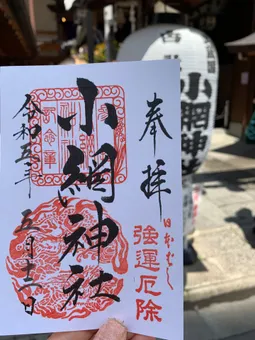 奉拝
日本橋
強運厄除
小網神社
令和五年 五月十一日
小網神社